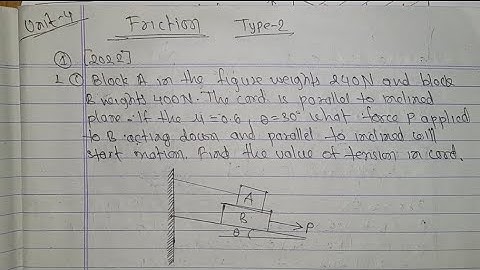 Unit-4
Friction Type-2
① [2022]
1 ① Block A in the figure weights 240N and block
B weights 400N. The cord is parallel to inclined
plane. If the μ=0.6, θ=30° what force P applied
to B acting down and parallel to inclined will
start motion. Find the value of tension in cord.
A
B
P
θ